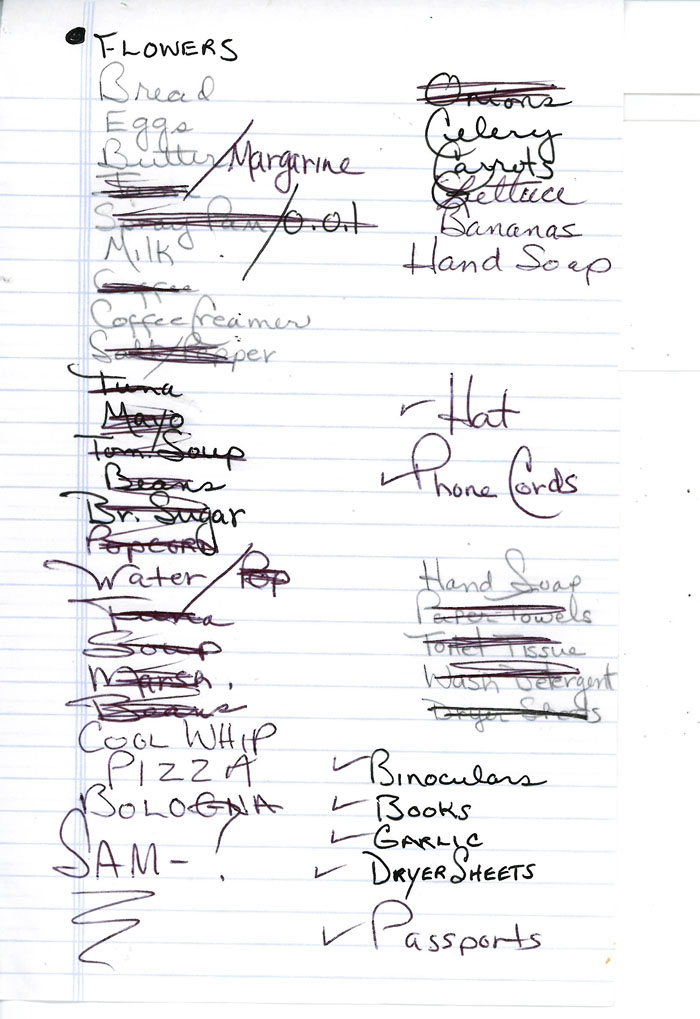 FLOWERS
Bread
Eggs
Butter/Margarine
Spray Pam/O.O.
Milk
Coffee
Coffee Creamer
Salt/Pepper
Tuna
Mayo
Tom. Soup
Beans
Br. Sugar
Popcorn
Water/Pop
Tuna
Soup
Marsh.
Beans
COOL WHIP
PIZZA
BOLOGNA
SAM- !
Onions
Celery
Carrots
Lettuce
Bananas
Hand Soap
✓ Hat
✓ Phone Cords
Hand Soap
Paper Towels
Toilet Tissue
Wash Detergent
Dryer Sheets
✓ Binoculars
✓ BOOKS
✓ GARLIC
✓ DRYER SHEETS
✓ Passports